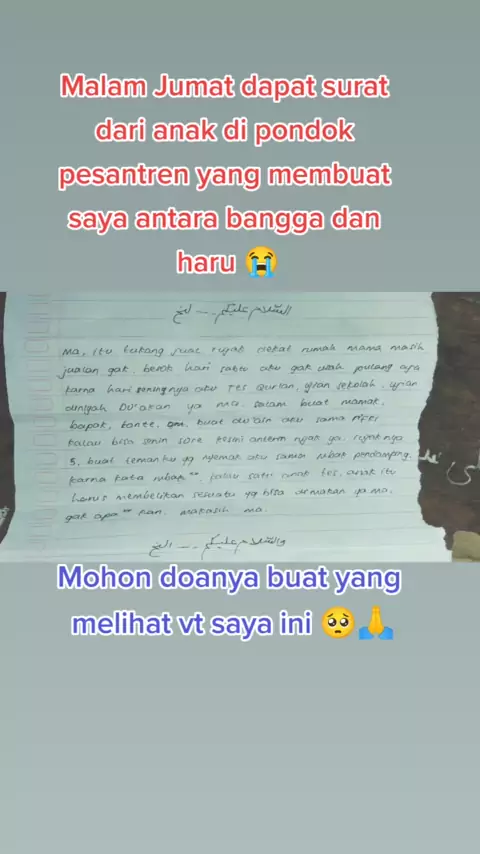 Malam Jumat dapat surat
dari anak di pondok
pesantren yang membuat
saya antara bangga dan
haru 😭
السلام عليكم --- الخ
Ma, itu tukang jual rujak dekat rumah mama masih
jualan gak. besok hari sabtu aku gak usah pulang aja
karna hari seninnya aku TES Qur'an, ujian sekolah, ujian
diniyah DU'akan ya ma. salam buat mamak,
bapak, tante, om, buat du'ain aku sama
kalau bisa senin sore kesini anterin rujak ya. rujaknya
3. buat temanku yg nyemak aku sama mbak pendamping.
karna kata mbak", kalau satu anak tes, anak itu
harus membelikan sesuatu yg bisa dimakan ya ma.
gak apa" kan. makasih ma.
والسلام عليكم --- الخ
Mohon doanya buat yang
melihat vt saya ini 🥺🙏